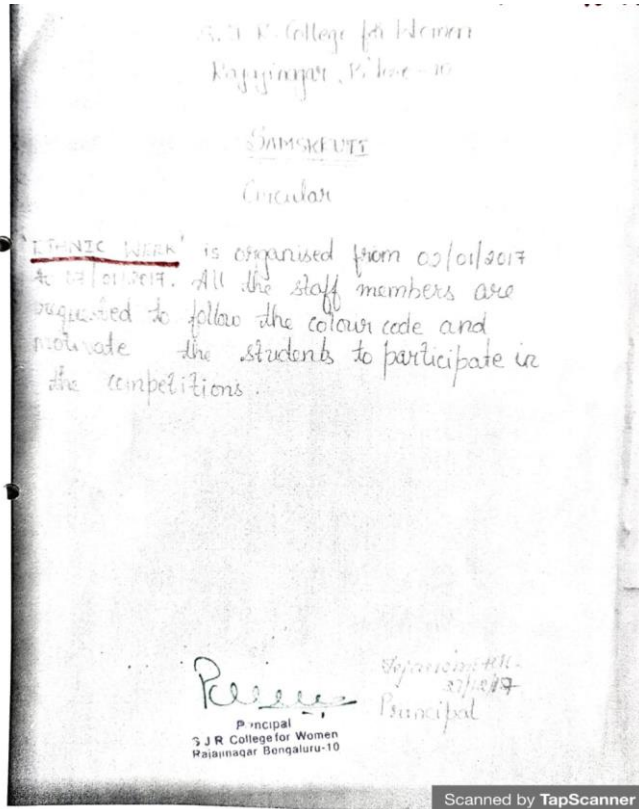 S. J. R. College for Women
Rajajinagar, B'lore-10
SAMSKRUTI
Circular
'ETHNIC WEEK' is organised from 02/01/2017
to 07/01/2017. All the staff members are
requested to follow the colour code and
motivate the students to participate in
the competitions.
Principal
Principal
S J R College for Women
Rajajinagar Bengaluru-10
Scanned by TapScanner